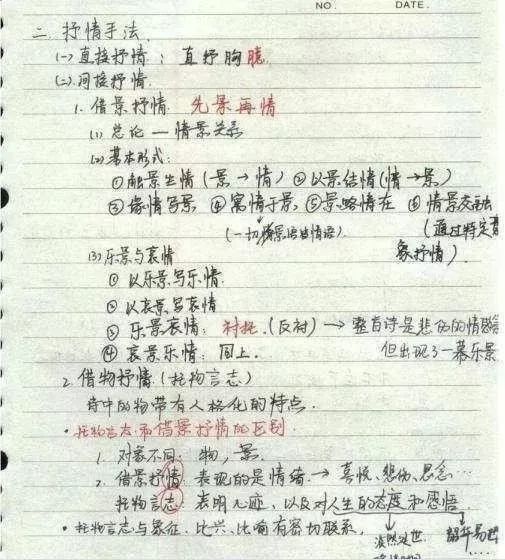 NO. DATE.
二. 抒情手法.
(一) 直接抒情: 直抒胸臆.
(二). 间接抒情.
1. 借景抒情. 先景再情
(1) 总论 — 情景关系
(2) 基本形式:
①触景生情(景→情) ②以景结情(情→景)
③缘情写景 ④寓情于景 ⑤景略情在 ⑥情景交融
(一切景语皆情语) (通过特定意
象抒情).
(3) 乐景与哀情
① 以乐景写乐情.
② 以哀景写哀情
③ 乐景哀情: 衬托.(反衬) → 整首诗是悲伤的情感
④ 哀景乐情: 同上. 但出现了一幕乐景
2. 借物抒情(托物言志)
诗中的物带有人格化的特点.
• 托物言志和借景抒情的区别
1. 对象不同: 物, 景.
2. 借景抒情: 表现的是情绪. → 喜悦、悲伤、思念…
托物言志: 表明心迹, 以及对人生的态度和感悟
• 托物言志与象征、比兴、比喻有密切联系. 韶华易逝